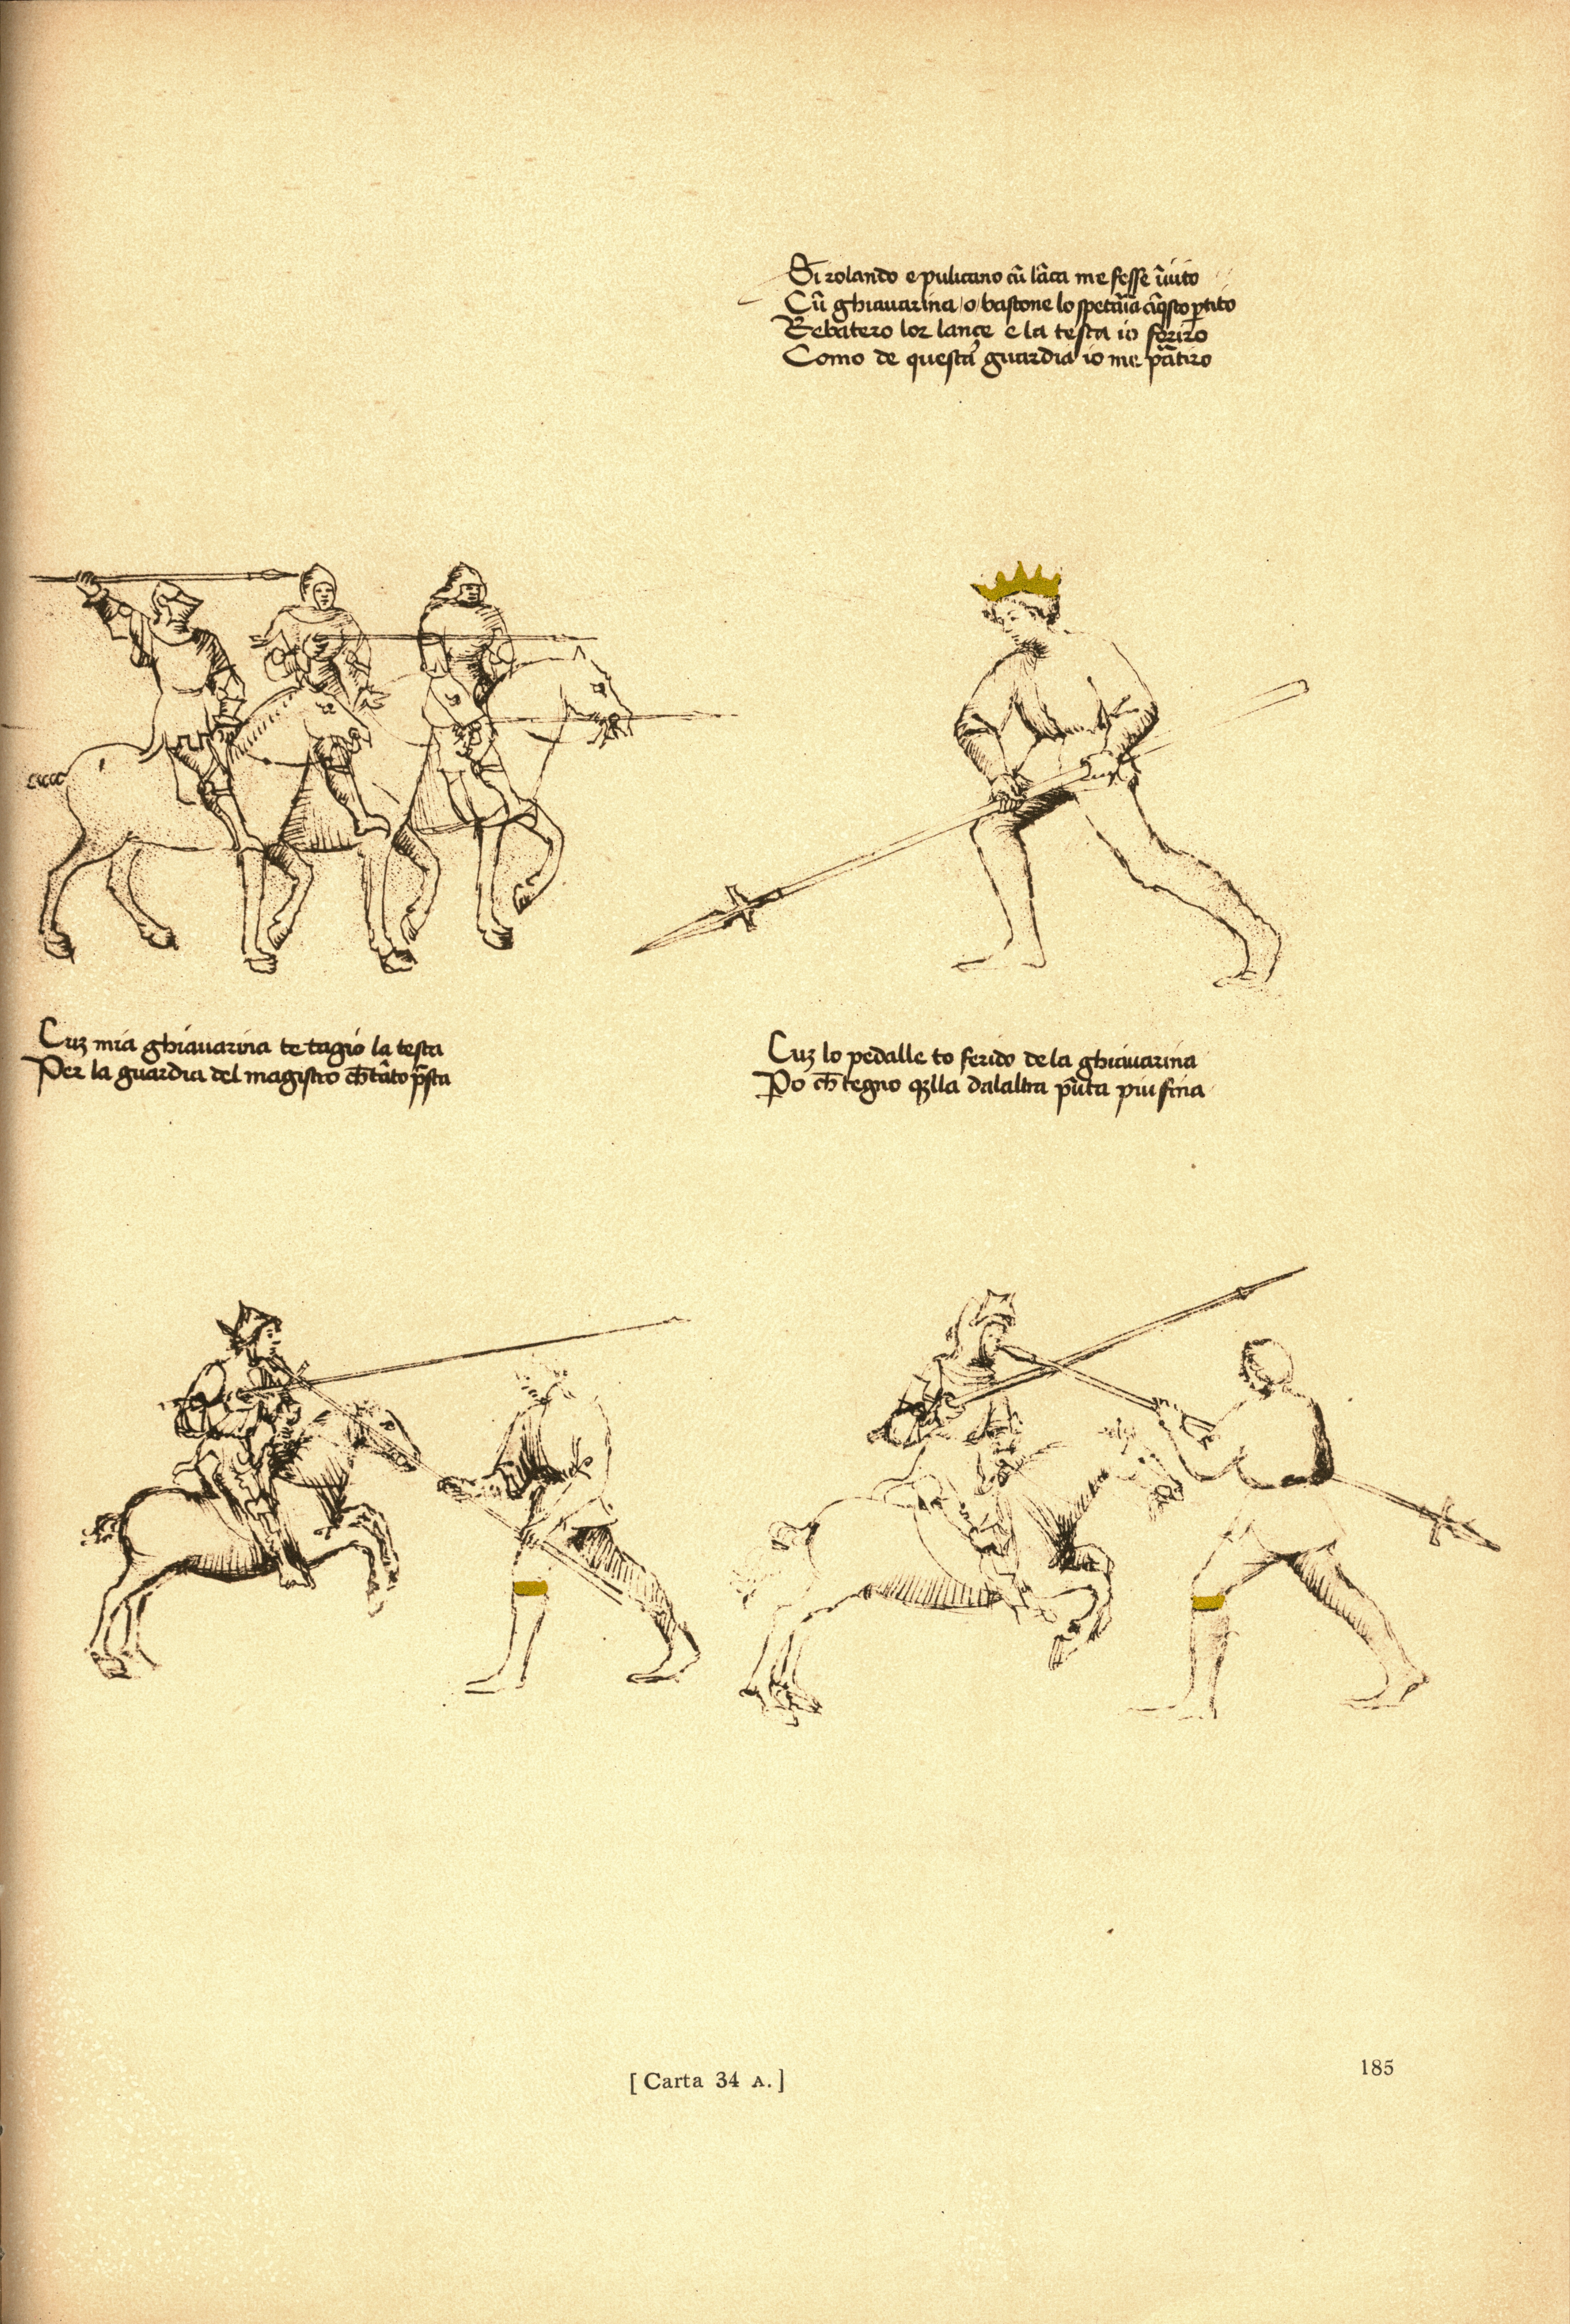 Si rolando e pulicano cũ lãca me fesse ĩuito
Cũ ghiauarina / o / bastone lo spetaria ĩ q̃sto ptito
Rebatero lor lançe e la testa io feriro
Como de questa guardia io me pãtiro
Cuȝ mia ghiauarina te tagio la testa
Per la guardia del magistro ch̃ tãto p̃sta
Cuȝ lo pedalle to ferido de la ghiauarina
Po ch̃ tegno q̃lla dalaltra põta piu fina
[ Carta 34 A. ]
185